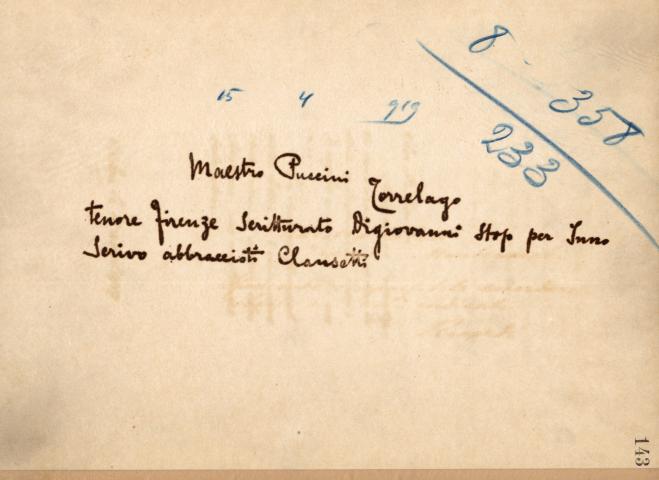 8 358
233
15 4 919
Maestro Puccini Torrelago
tenore Firenze Scritturato Digiovanni Stop per Inno
Scrivo abbraccioti Clausetti
143